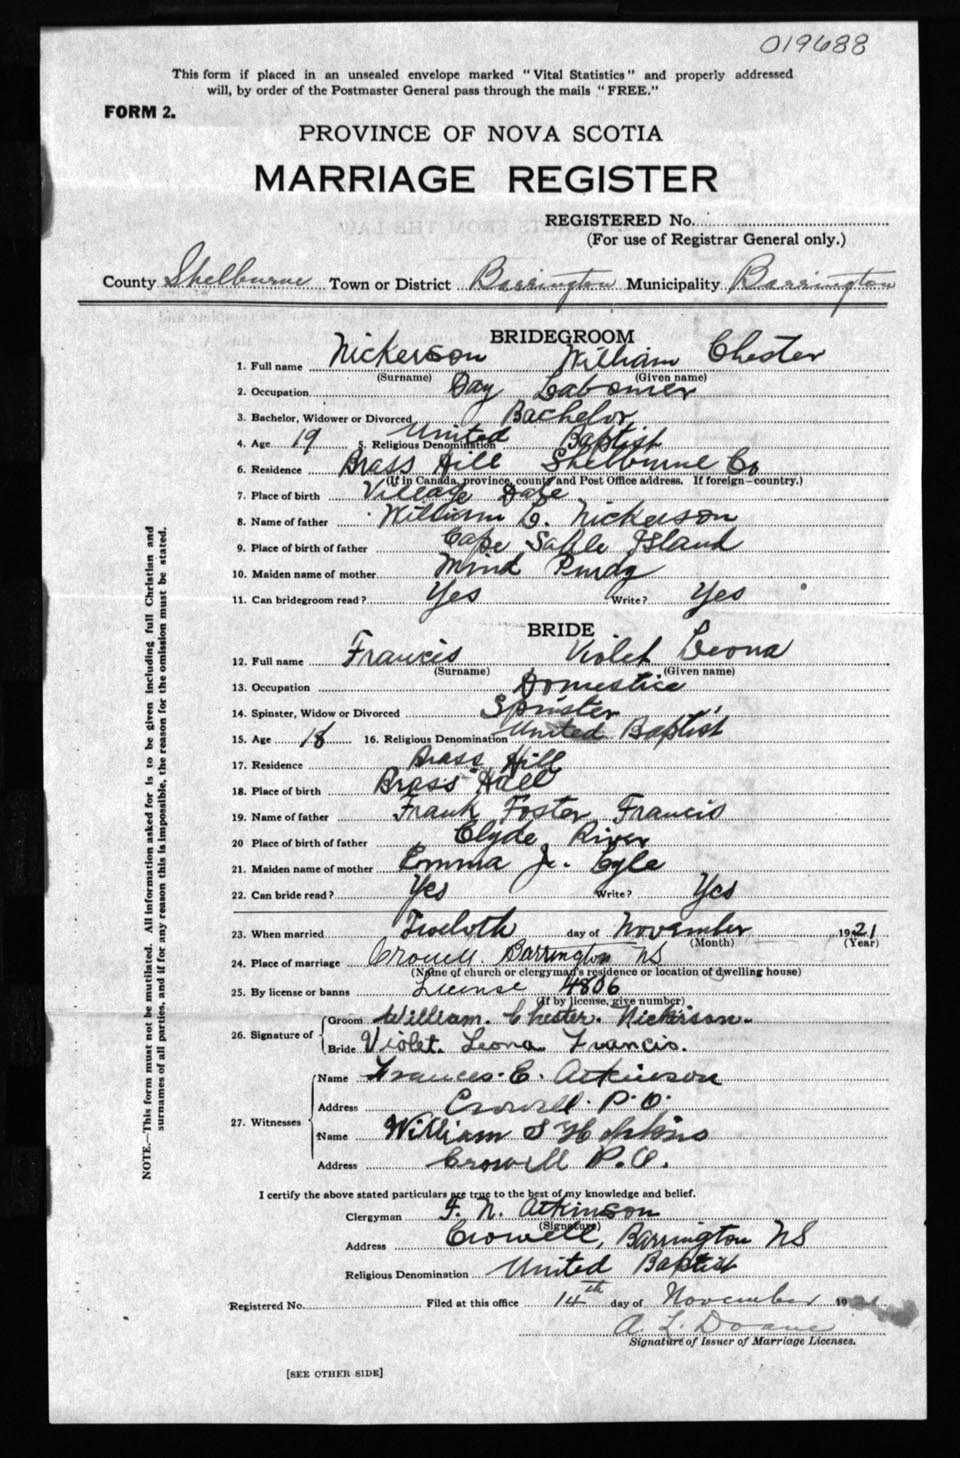 019688
This form if placed in an unsealed envelope marked "Vital Statistics" and properly addressed
will, by order of the Postmaster General pass through the mails "FREE."
FORM 2.
PROVINCE OF NOVA SCOTIA
MARRIAGE REGISTER
REGISTERED No.
(For use of Registrar General only.)
County Shelburne Town or District Barrington Municipality Barrington
BRIDEGROOM
1. Full name Nickerson William Chester
(Surname) (Given name)
2. Occupation Day Labourer
3. Bachelor, Widower or Divorced Bachelor
4. Age 19 5. Religious Denomination United Baptist
6. Residence Brass Hill Shelburne Co
(If in Canada, province, county and Post Office address. If foreign—country.)
7. Place of birth Village Dale
8. Name of father William L. Nickerson
9. Place of birth of father Cape Sable Island
10. Maiden name of mother Purdy
11. Can bridegroom read? Yes Write? Yes
BRIDE
12. Full name Francis Violet Leona
(Surname) (Given name)
13. Occupation Domestic
14. Spinster, Widow or Divorced Spinster
15. Age 18 16. Religious Denomination United Baptist
17. Residence Brass Hill
18. Place of birth Brass Hill
19. Name of father Frank Foster Francis
20 Place of birth of father Clyde River
21. Maiden name of mother Emma J. Lyle
22. Can bride read? Yes Write? Yes
23. When married Twelvth day of November 1921
(Month) (Year)
24. Place of marriage Crowell Barrington NS
(Name of church or clergyman's residence or location of dwelling house)
25. By license or banns License 4806
(If by license, give number)
26. Signature of Groom William. Chester. Nickerson.
Bride Violet. Leona. Francis.
27. Witnesses
Name Frances. E. Atkinson
Address Crowell. P.O.
Name William S Hopkins
Address Crowell P.O.
I certify the above stated particulars are true to the best of my knowledge and belief.
Clergyman F. N. Atkinson
(Signature)
Address Crowell, Barrington NS
Religious Denomination United Baptist
Registered No. Filed at this office 14th day of November 19
A. L. Doane
Signature of Issuer of Marriage Licenses.
[SEE OTHER SIDE]
NOTE.—This form must not be mutilated. All information asked for is to be given including full Christian and
surnames of all parties, and if for any reason this is impossible, the reason for the omission must be stated.